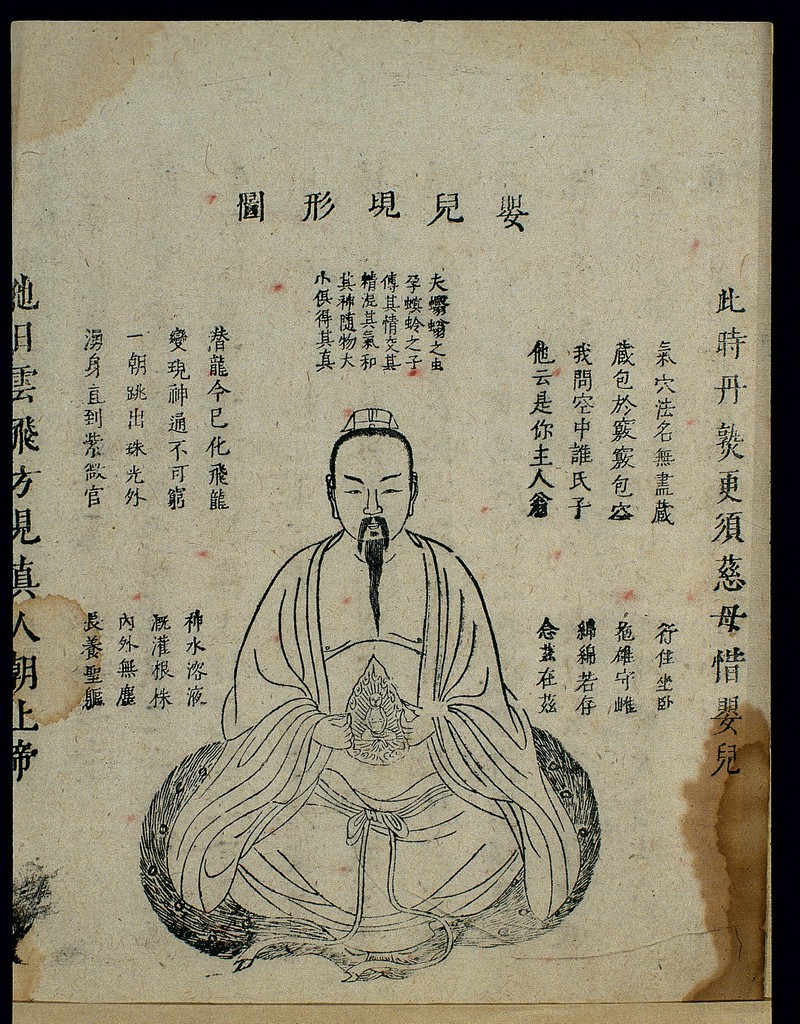 嬰兒現形圖
此時丹熟更須慈母惜嬰兒
氣穴法名無盡藏
藏包於竅竅包空
我問空中誰氏子
他云是你主人翁
行住坐卧
抱雄守雌
綿綿若存
念兹在兹
夫蠮螉之虫
孕螟蛉之子
傳其情交其
精混其氣和
其神随物大
小俱得其真
潛龍今已化飛龍
變現神通不可窮
一朝跳出珠光外
湧身直到紫微宫
神水溶液
溉灌根株
內外無塵
長養聖軀
他日雲飛方見真人朝上帝